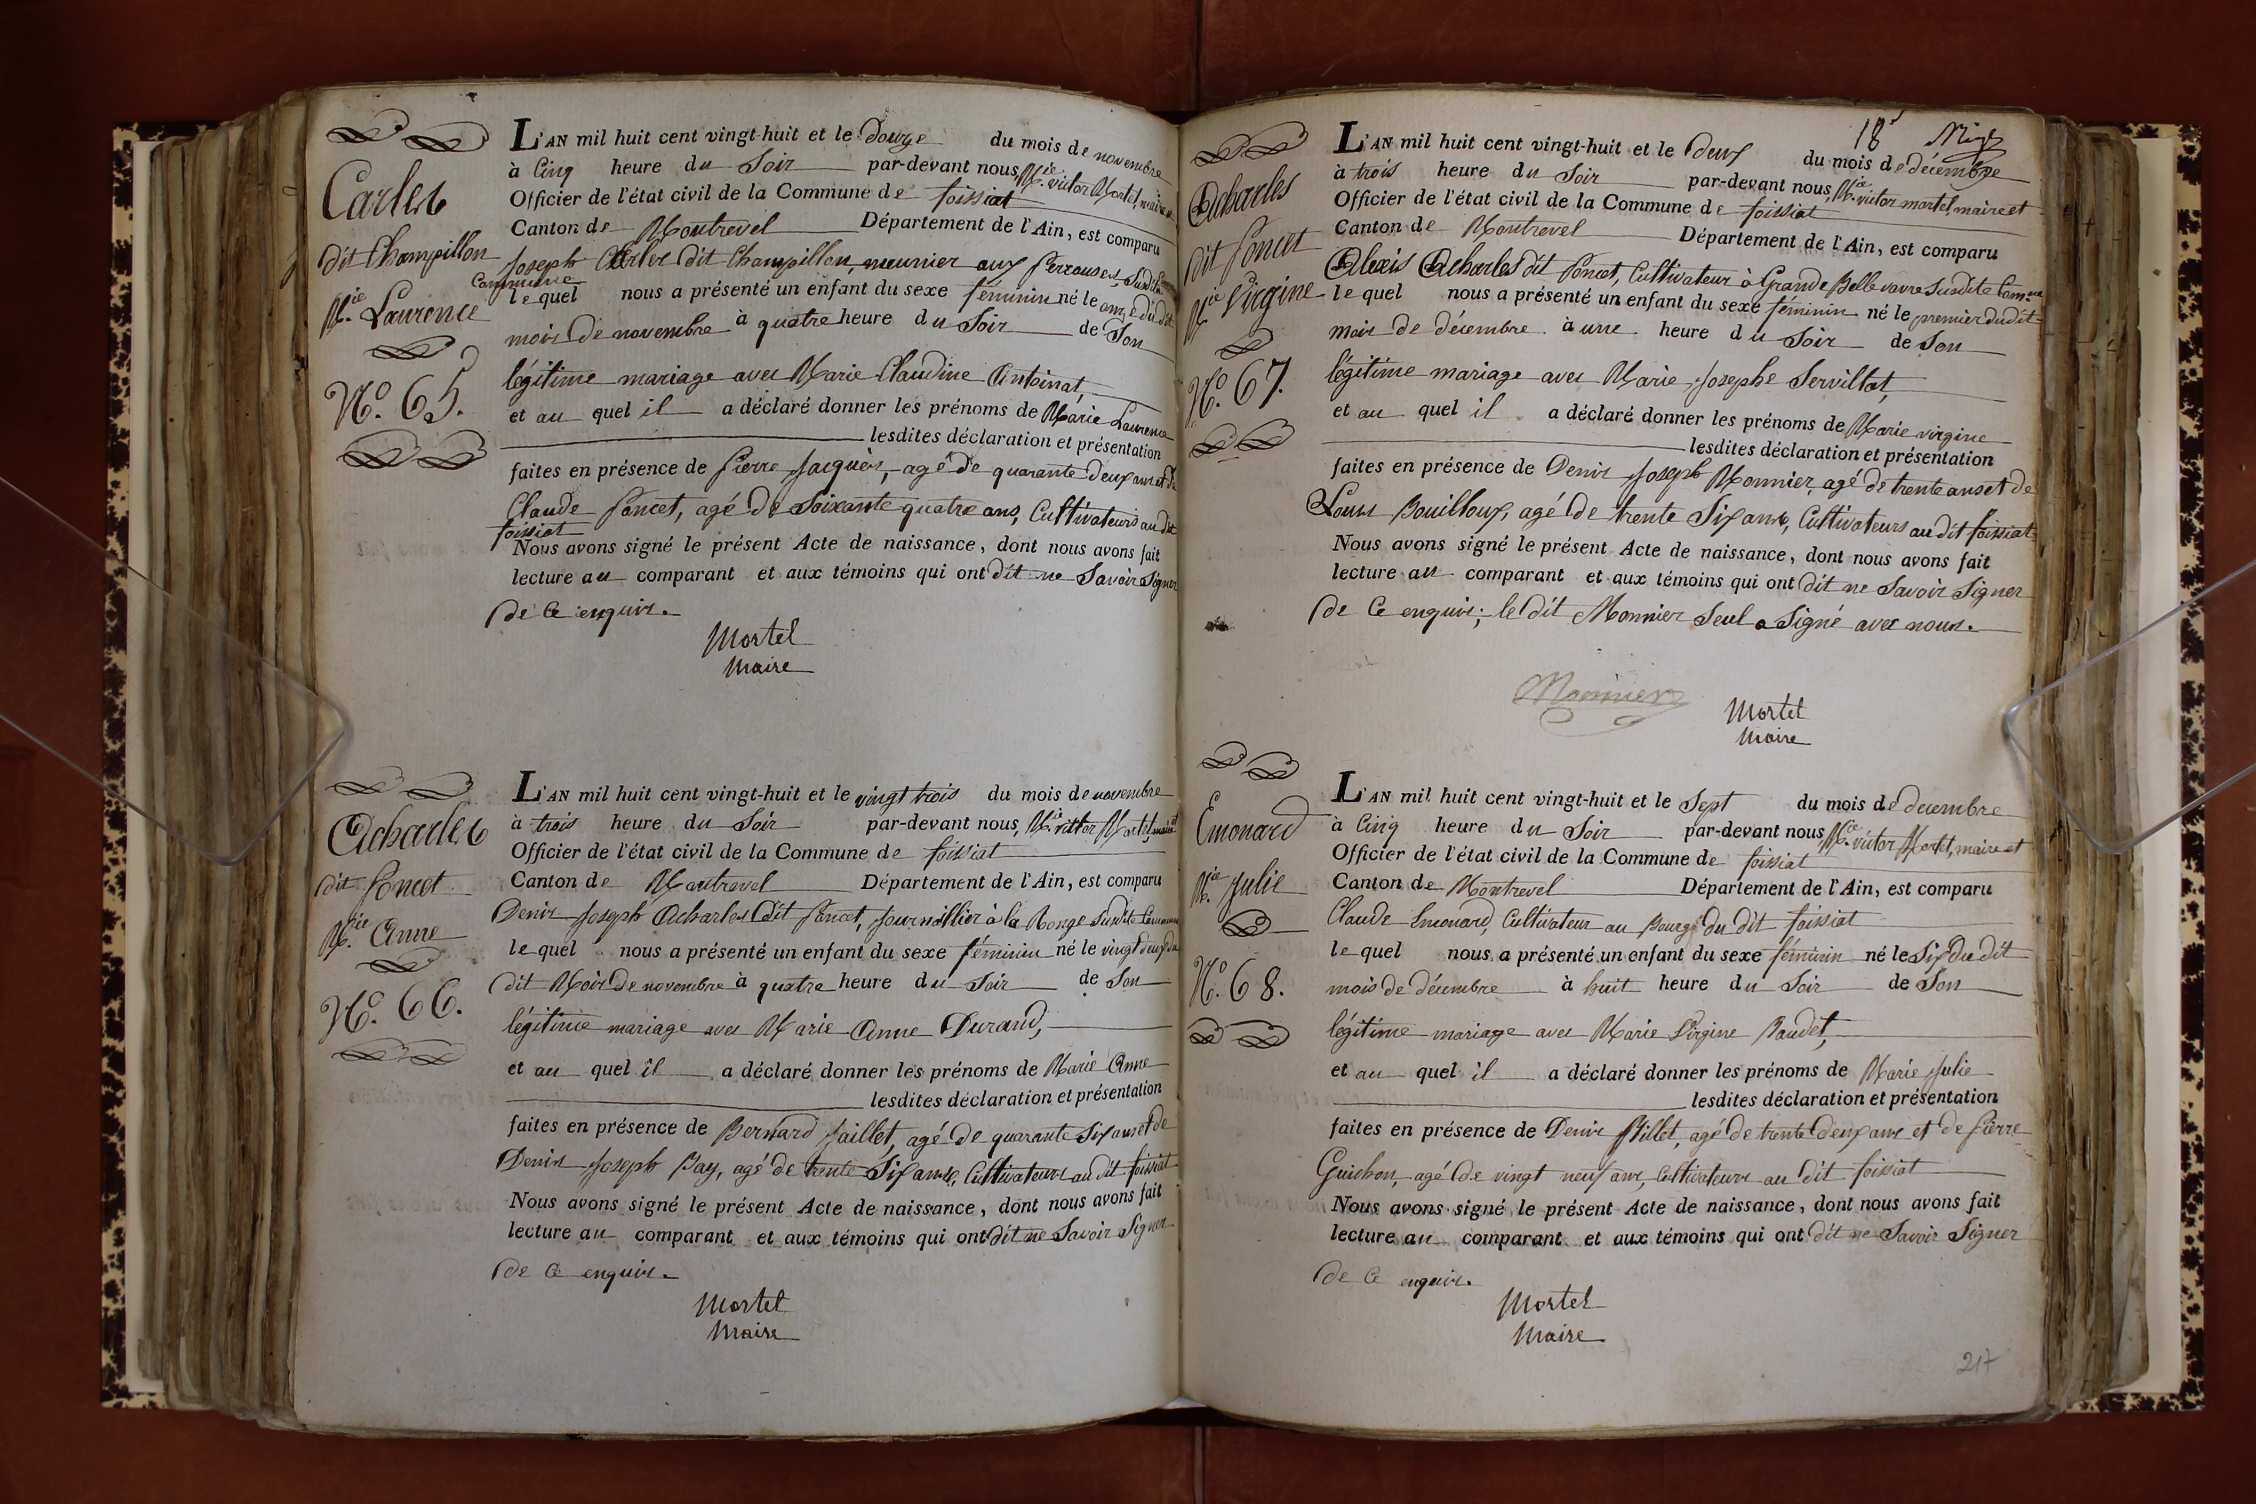 Carlet
dit Champillon
M.ie Laurence
N.o 65.
L'AN mil huit cent vingt-huit et le douze du mois de novembre
à cinq heure du Soir par-devant nous, M.ie victor Mortel, maire et
Officier de l'état civil de la Commune de foissiat
Canton de Montrevel Département de l'Ain, est comparu
Joseph Carlet dit Champillon, meunier aux
Commune
lequel nous a présenté un enfant du sexe féminin né le onze du dit
mois de novembre à quatre heure du Soir de Son
légitime mariage avec Marie Claudine Antoinat,
et au quel il a déclaré donner les prénoms de Marie Laurence
lesdites déclaration et présentation
faites en présence de pierre Jacquet, agé de quarante deux ans et de
Claude poncet, agé de Soixante quatre ans, Cultivateurs au dit
foissiat
Nous avons signé le présent Acte de naissance, dont nous avons fait
lecture au comparant et aux témoins qui ont dit ne Savoir Signer
de ce enquis.
Mortel
Maire
Acharles
dit poncet
M.ie Anne
N.o 66.
L'AN mil huit cent vingt-huit et le vingt trois du mois de novembre
à trois heure du Soir par-devant nous, M.ie victor Mortel, maire et
Officier de l'état civil de la Commune de foissiat
Canton de Montrevel Département de l'Ain, est comparu
Denis Joseph Acharles dit poncet, Journallier à la Ronge Susdite Commune
lequel nous a présenté un enfant du sexe féminin né le vingt deux du
dit Mois de novembre à quatre heure du Soir de Son
légitime mariage avec Marie Anne Durand,
et au quel il a déclaré donner les prénoms de Marie Anne
lesdites déclaration et présentation
faites en présence de Bernard Jaillet, agé de quarante Six ans et de
Denis Joseph Bay, agé de trente Six ans, Cultivateurs au dit foissiat
Nous avons signé le présent Acte de naissance, dont nous avons fait
lecture au comparant et aux témoins qui ont dit ne Savoir Signer
de ce enquis.
Mortel
Maire
18
Acharles
dit poncet
M.ie Virgine
N.o 67.
L'AN mil huit cent vingt-huit et le deux du mois de décembre
à trois heure du Soir par-devant nous, M.ie victor mortel, maire et
Officier de l'état civil de la Commune de foissiat
Canton de Montrevel Département de l'Ain, est comparu
Alexis Acharles dit poncet, Cultivateur à Grande Bellevavre Susdite Com.ne
lequel nous a présenté un enfant du sexe féminin né le premier du dit
mois de décembre à une heure du Soir de Son
légitime mariage avec Marie Josephe Servillat,
et au quel il a déclaré donner les prénoms de Marie virgine
lesdites déclaration et présentation
faites en présence de Denis Joseph Monnier, agé de trente ans et de
Louis Bouilloux, agé de trente Six ans, Cultivateurs au dit foissiat
Nous avons signé le présent Acte de naissance, dont nous avons fait
lecture au comparant et aux témoins qui ont dit ne Savoir Signer
de ce enquis; le dit Monnier Seul a Signé avec nous.
Monnier
Mortel
Maire
Emonard
M.ie Julie
N.o 68.
L'AN mil huit cent vingt-huit et le Sept du mois de décembre
à Cinq heure du Soir par-devant nous, M.ie victor Mortel, maire et
Officier de l'état civil de la Commune de foissiat
Canton de Montrevel Département de l'Ain, est comparu
Claude Emonard, Cultivateur au Bourg du dit foissiat
lequel nous a présenté un enfant du sexe féminin né le Six du dit
mois de décembre à huit heure du Soir de Son
légitime mariage avec Marie Virgine Baudet,
et au quel il a déclaré donner les prénoms de Marie Julie
lesdites déclaration et présentation
faites en présence de Denis Billet, agé de trente deux ans et de pierre
Guichon, agé de vingt neuf ans, Cultivateurs au dit foissiat
Nous avons signé le présent Acte de naissance, dont nous avons fait
lecture au comparant et aux témoins qui ont dit ne Savoir Signer
de ce enquis.
Mortel
Maire
217